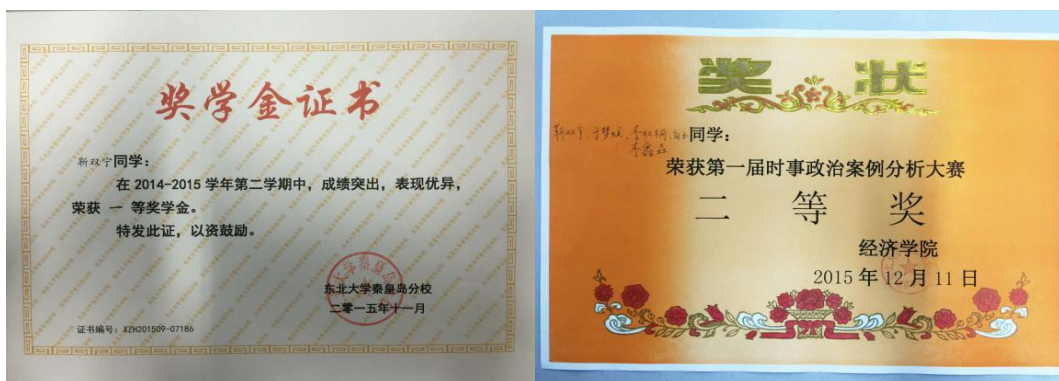 奖学金证书
靳双宁同学：
在 2014-2015 学年第二学期中，成绩突出，表现优异，
荣获 一 等奖学金。
特发此证，以资鼓励。
东北大学秦皇岛分校
二零一五年十一月
证书编号：XZH201509-07186
奖状
靳双宁、 同学：
荣获第一届时事政治案例分析大赛
二等奖
经济学院
2015 年 12 月 11 日